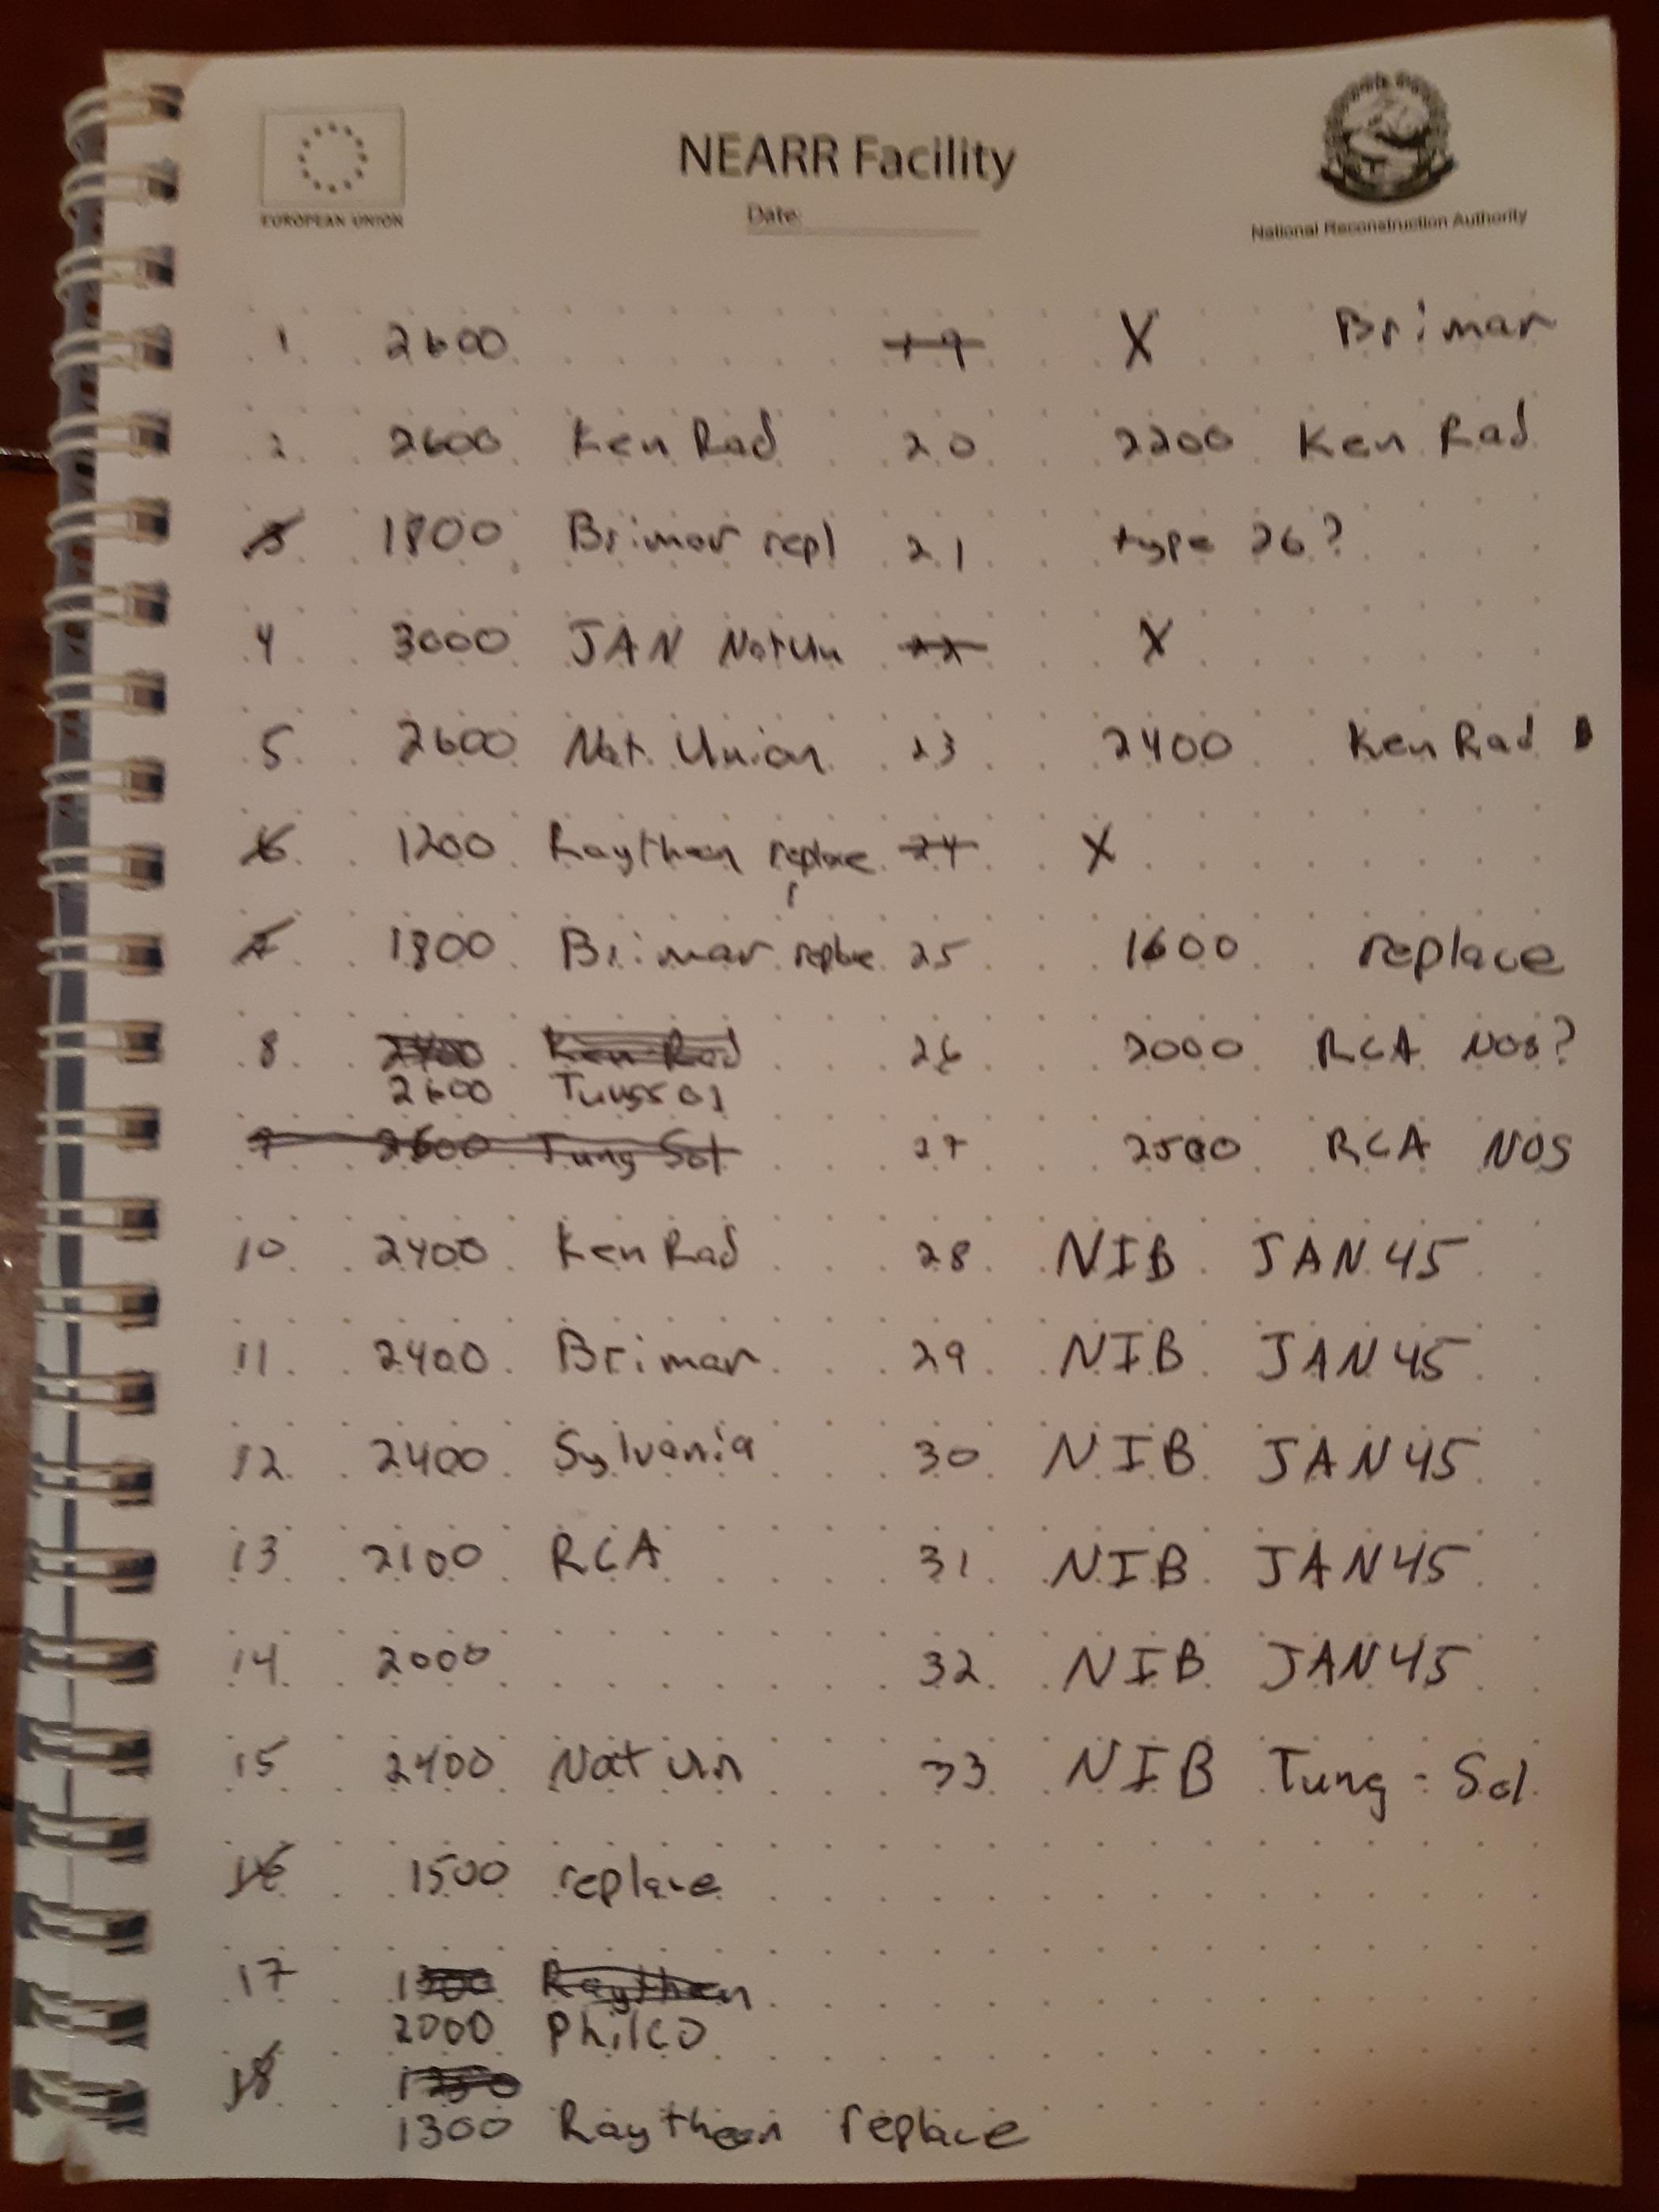 EUROPEAN UNION
NEARR Facility
Date:
National Reconstruction Authority
1 2600 19 X Brimar
2 2600 Ken Rad 20 2200 Ken Rad
3 1800 Brimar repl 21 type 26?
4 3000 JAN NatUn 22 X
5 2600 Nat. Union 23 2400 Ken Rad
6 1200 Raytheon replace 24 X
7 1800 Brimar replace 25 1600 replace
8 2400 Ken Rad 26 2000 RCA NOS?
2600 Tungsol
9 2600 Tung Sol 27 2500 RCA NOS
10 2400 Ken Rad 28 NIB JAN 45
11 2400 Brimar 29 NIB JAN 45
12 2400 Sylvania 30 NIB JAN 45
13 2100 RCA 31 NIB JAN 45
14 2000 32 NIB JAN 45
15 2400 Nat Un 33 NIB Tung-Sol
16 1500 replace
17 1300 Raytheon
2000 Philco
18
1300 Raytheon replace